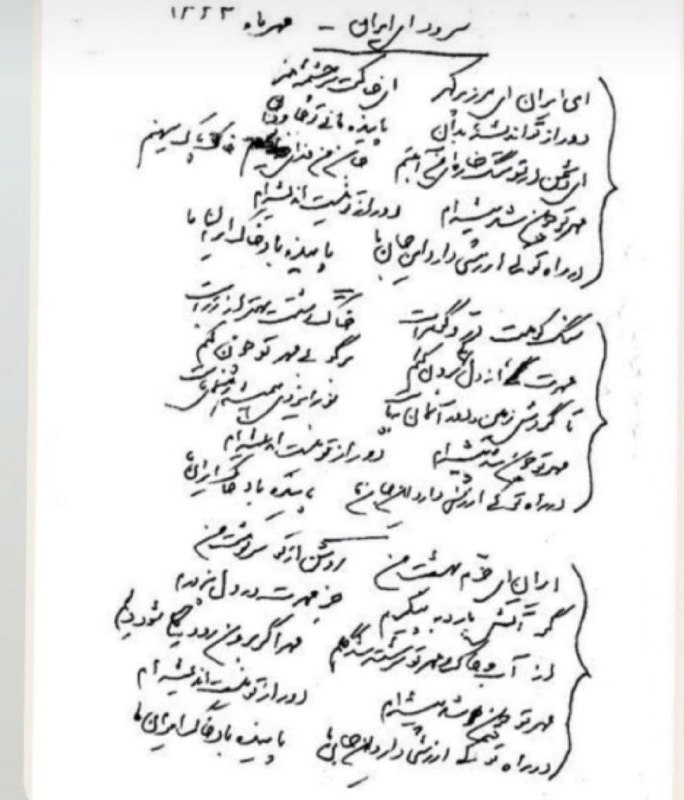 سرود ای ایران - مهرماه ۱۳۲۳
ای ایران ای مرز پر گهر ای خاکت سرچشمه هنر
دور از تو اندیشه بدان پاینده مانی تو جاودان
ای دشمن ار تو سنگ خاره‌ای من آهنم جان من فدای خاک پاک میهنم
مهر تو چون شد پیشه‌ام دور از تو نیست اندیشه‌ام
در راه تو کی ارزشی دارد این جان ما پاینده باد خاک ایران ما
سنگ کوهت در و گوهر است خاک دشتت بهتر از زر است
مهرت از دل کی برون کنم برگو بی مهر تو چون کنم
تا گردش زمین و دور آسمان بپاست نور ایزدی همیشه رهنمای ماست
مهر تو چون شد پیشه‌ام دور از تو نیست اندیشه‌ام
در راه تو کی ارزشی دارد این جان ما پاینده باد خاک ایران ما
ایران ای خرم بهشت من روشن از تو سرنوشت من
گر آتش بارد به پیکرم جز مهرت در دل نپرورم
از آب و خاک و مهر تو سرشته شد گلم مهر اگر برون رود تهی شود دلم
مهر تو چون شد پیشه‌ام دور از تو نیست اندیشه‌ام
در راه تو کی ارزشی دارد این جان ما پاینده باد خاک ایران ما